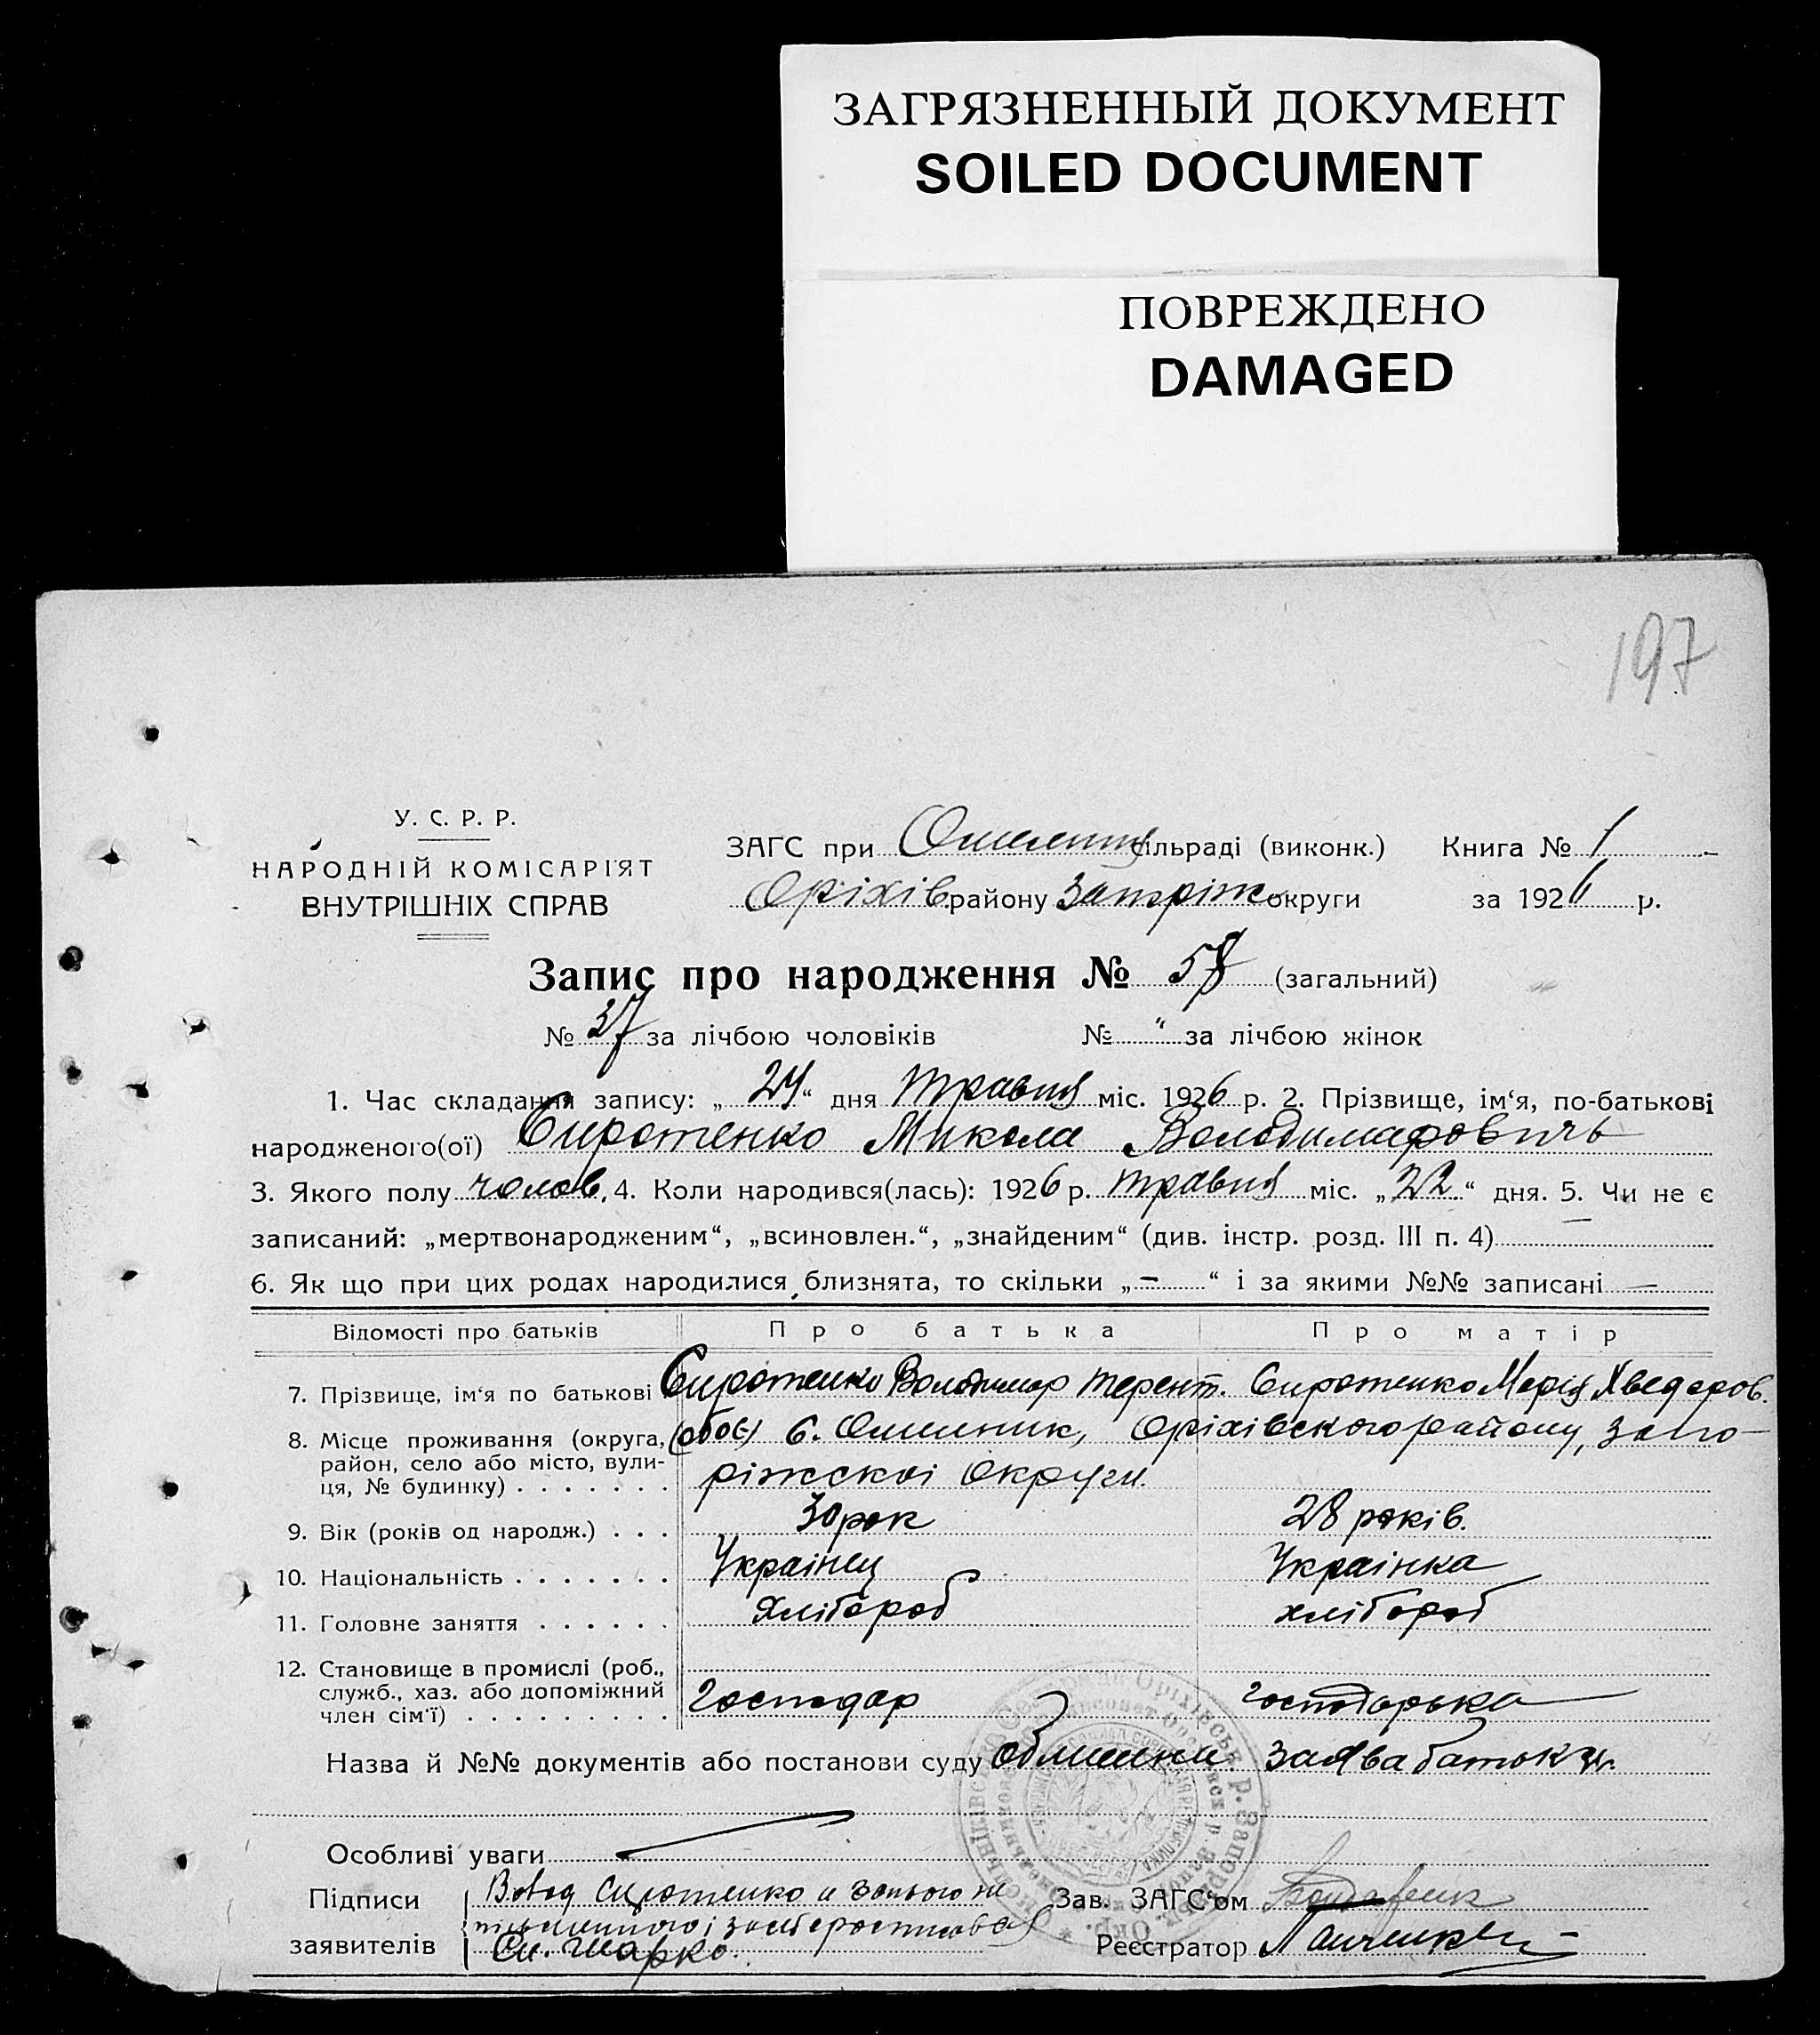 ЗАГРЯЗНЕННЫЙ ДОКУМЕНТ
SOILED DOCUMENT
ПОВРЕЖДЕНО
DAMAGED
197
У. С. Р. Р.
НАРОДНІЙ КОМІСАРІЯТ
ВНУТРІШНІХ СПРАВ
ЗАГС при сільраді (виконк.) Книга № 1
Оріхів району Запоріж округи за 1926 р.
Запис про народження № 58 (загальний)
№ 37 за лічбою чоловіків № " за лічбою жінок
1. Час складання запису: „ 24 “ дня травня міс. 1926 р. 2. Прізвище, ім‘я, по-батькові
народженого(ої) Сиротенко Микола Володимировичь
3. Якого полу чолов. 4. Коли народився(лась): 1926 р. травня міс. „ 22 “ дня. 5. Чи не є
записаний: „мертвонародженим“, „всиновлен.“, „знайденим“ (див. інстр. розд. III п. 4) —
6. Як що при цих родах народилися близнята, то скільки „ – “ і за якими №№ записані —
Відомості про батьків Про батька Про матір
7. Прізвище, ім‘я по батькові Сиротенко Володимир Терент. Сиротенко Марія Хведоров.
8. Місце проживання (округа, район, село або місто, вули-ця, № будинку) (обоє) с. Омельник, Оріхівского району, Запо-
ріжскої Округи.
9. Вік (років од народж.) 30 рок 28 років.
10. Національність Украінец Украінка
11. Головне заняття Хлібороб хлібороб
12. Становище в промислі (роб., служб., хаз. або допоміжний член сім‘ї) Господар господарька
Назва й №№ документів або постанови суду заява батька
Особливі уваги
Підписи Сиротенко Зав. ЗАГС‘ом
заявителів Шарко. Реєстратор